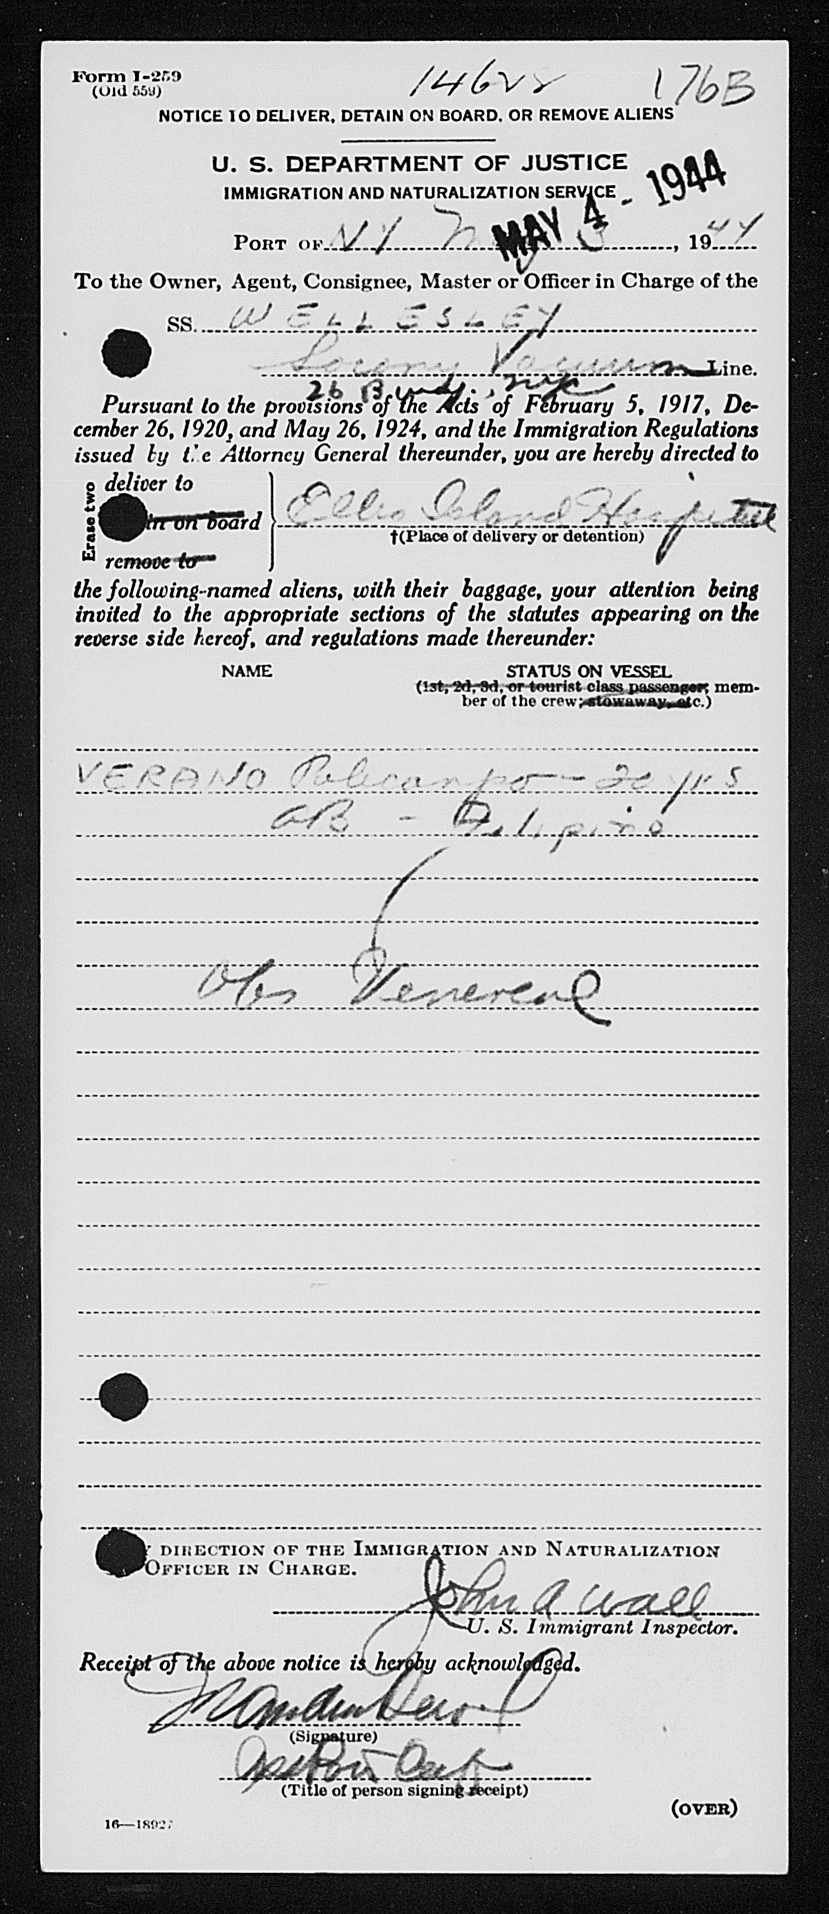 Form I-259
(Old 559)
176B
NOTICE TO DELIVER, DETAIN ON BOARD, OR REMOVE ALIENS
U. S. DEPARTMENT OF JUSTICE
IMMIGRATION AND NATURALIZATION SERVICE
MAY 4 - 1944
PORT OF NY May 3, 1944
To the Owner, Agent, Consignee, Master or Officer in Charge of the
SS. WELLESLEY
Socony Vacuum Line.
26 Bwdy., NYC
Pursuant to the provisions of the Acts of February 5, 1917, De-
cember 26, 1920, and May 26, 1924, and the Immigration Regulations
issued by the Attorney General thereunder, you are hereby directed to
Erase two
deliver to
in on board
remove to
Ellis Island Hospital
†(Place of delivery or detention)
the following-named aliens, with their baggage, your attention being
invited to the appropriate sections of the statutes appearing on the
reverse side hereof, and regulations made thereunder:
NAME STATUS ON VESSEL
(1st, 2d, 3d, or tourist class passenger; mem-
ber of the crew; stowaway, etc.)
VERANO Policanpo - 20 yrs
AB - Filipino
Obs Venereal
DIRECTION OF THE IMMIGRATION AND NATURALIZATION
OFFICER IN CHARGE.
John A Wall
U. S. Immigrant Inspector.
Receipt of the above notice is hereby acknowledged.
(Signature)
(Title of person signing receipt)
(OVER)
16—18927